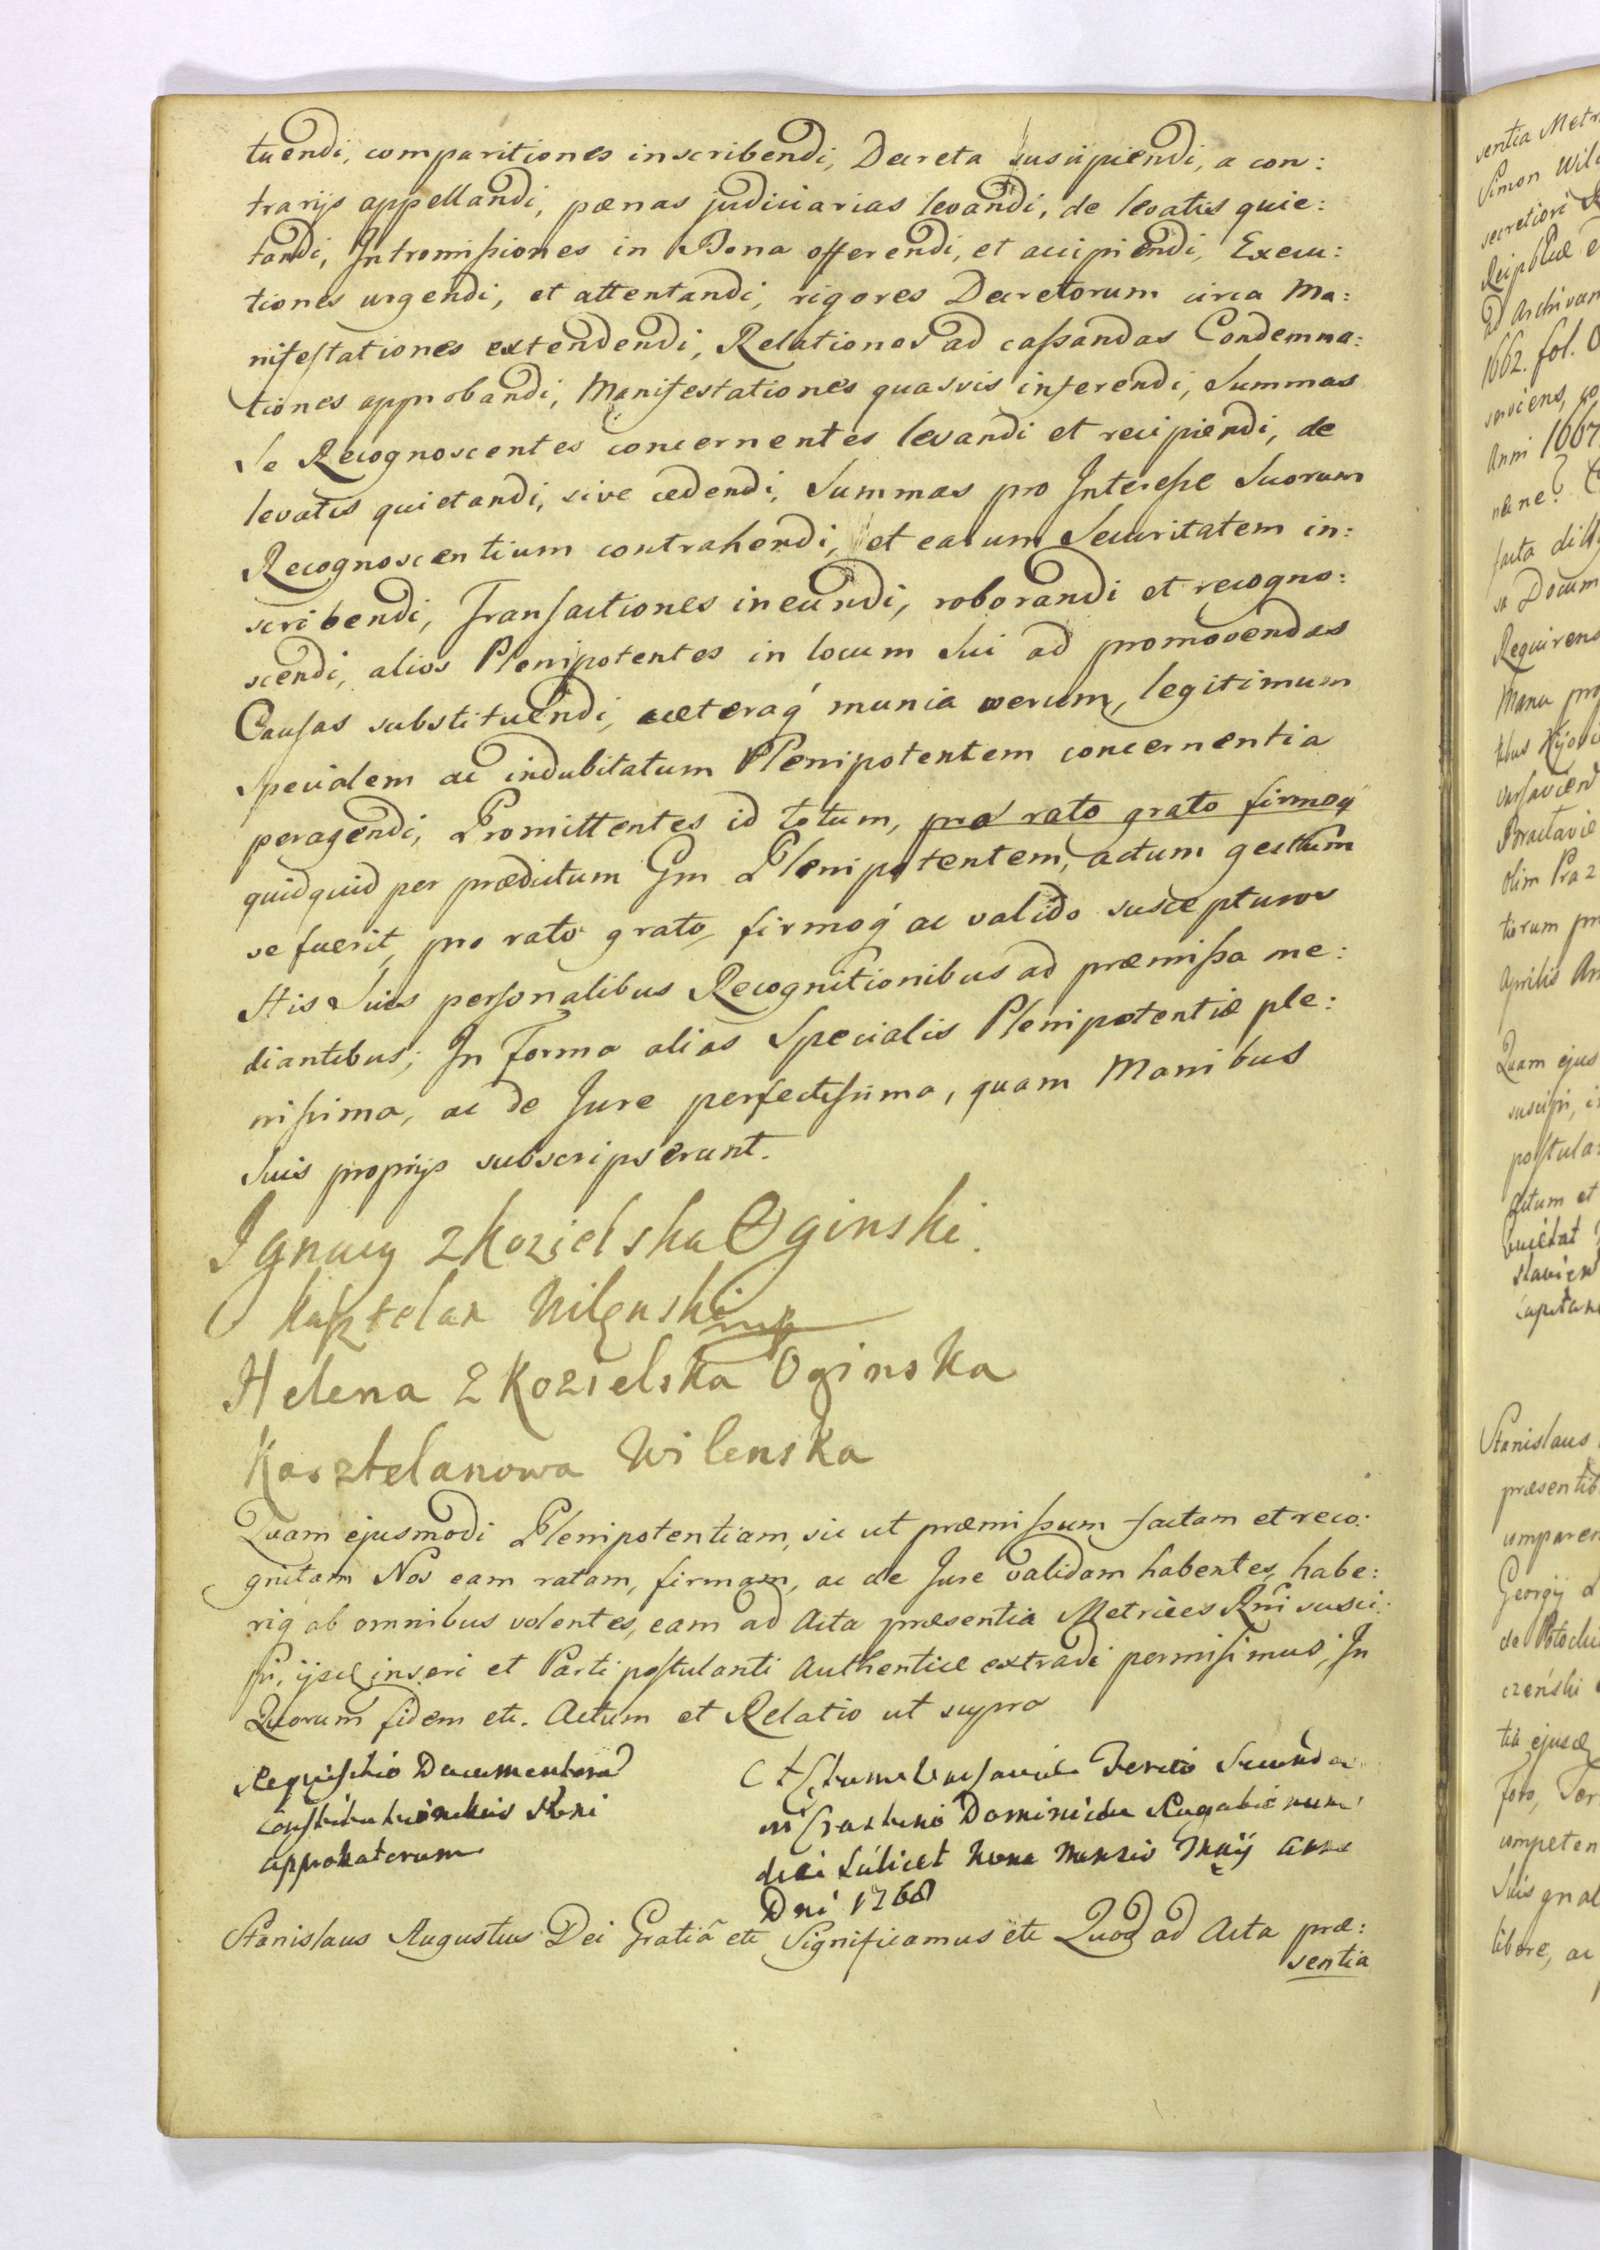 tuendi, comparitiones inscribendi, Decreta suscipiendi, a con:
trarijs appellandi, pænas judiciarias levandi, de levatis quie:
tandi, Intromissiones in Bona offerendi, et accipiendi, Execu:
tiones urgendi, et attentandi, rigores Decretorum circa Ma:
nifestationes extendendi, Relationes ad cassandas Condemna:
tiones approbandi, Manifestationes quasvis inferendi, Summas
Se Recognoscentes concernentes levandi et recipiendi, de
levatis quietandi, sive cedendi, Summas pro Interesse Suorum
Recognoscentium contrahendi, et earum Securitatem in:
scribendi, Transactiones ineundi, roborandi et recogno:
scendi, alios Plenipotentes in locum Sui ad promovendas
Causas substituendi, cæteraq́ munia verum, legitimum
Specialem ac indubitatum Plenipotentem concernentia
peragendi, Promittentes id totum, pro rato grato firmoq́
quidquid per prædictum Gm Plenipotentem, actum gestum
ve fuerit, pro rato grato, firmoq́ ac valido suscepturos
His Suis personalibus Recognitionibus ad præmissa me:
diantibus; In Forma alias Specialis Plenipotentiæ ple:
nissima, ac de Jure perfectissima, quam Manibus
Suis proprijs subscripserunt.
Ignacy z Kozielska Oginski.
Kasztelan Wilenski mp
Helena z Kozielska Oginska
Kasztelanowa Wilenska
Quam ejusmodi Plenipotentiam, sic ut præmissum factam et reco:
gnitam Nos eam ratam, firmam, ac de Jure validam habentes, habe:
riq́ ab omnibus volentes, eam ad Acta præsentia Metrices Rñi susci:
pi, ijsq́ inseri et Parti postulanti Authentice extradi permisimus; In
Quorum fidem etc. Actum et Relatio ut supra
Requisitio Documentorum
Constitutionibus Regni
approbatorum
Actum Varsaviæ Feria Secunda
in Crastino Dominicæ Rogationum
diei scilicet Nona Mensis Maij Anno
Dni 1768
Stanislaus Augustus Dei Gratiã etc Significamus etc Quod ad Acta præ:
sentia
sentia Metr
Simon
secretiori
Reipblicæ
ad Archivum
1662. fol.
serviens,
Anni 1667
facta
Docum
Requirens
Manu pro
Varsavien
olim Praz
tiorum
Aprilis An
Quam ejus
suscipi, i
postula:
Actum et
Capitan
Stanislaus
præsentib
comparen
Georgij
de Potocki
czeński
tia ejusq́
Foro, Ter
competen
Suis
libere, ac